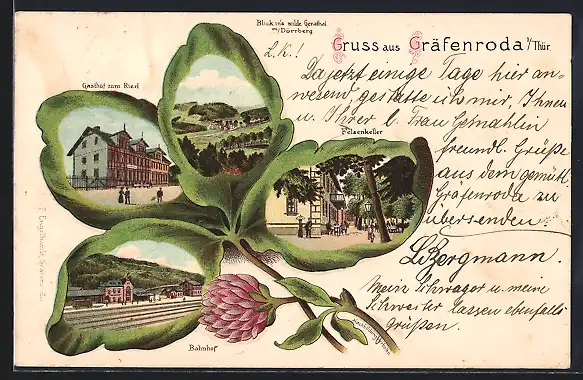 Blick in's wilde Gerathal
m/Dörrberg
Gruss aus Gräfenroda i/Thür.
Gasthof zum Ried
Felsenkeller
Bahnhof
L.K.!
Da jetzt einige Tage hier an-
wesend gestatte ich mir, Ihnen
u. Ihrer l. Frau Gemahlin
freundl. Grüße
aus dem gemütl.
Gräfenroda zu
übersenden.
L. Bergmann.
Mein Schwager u. meine
Schwester lassen ebenfalls
grüßen.